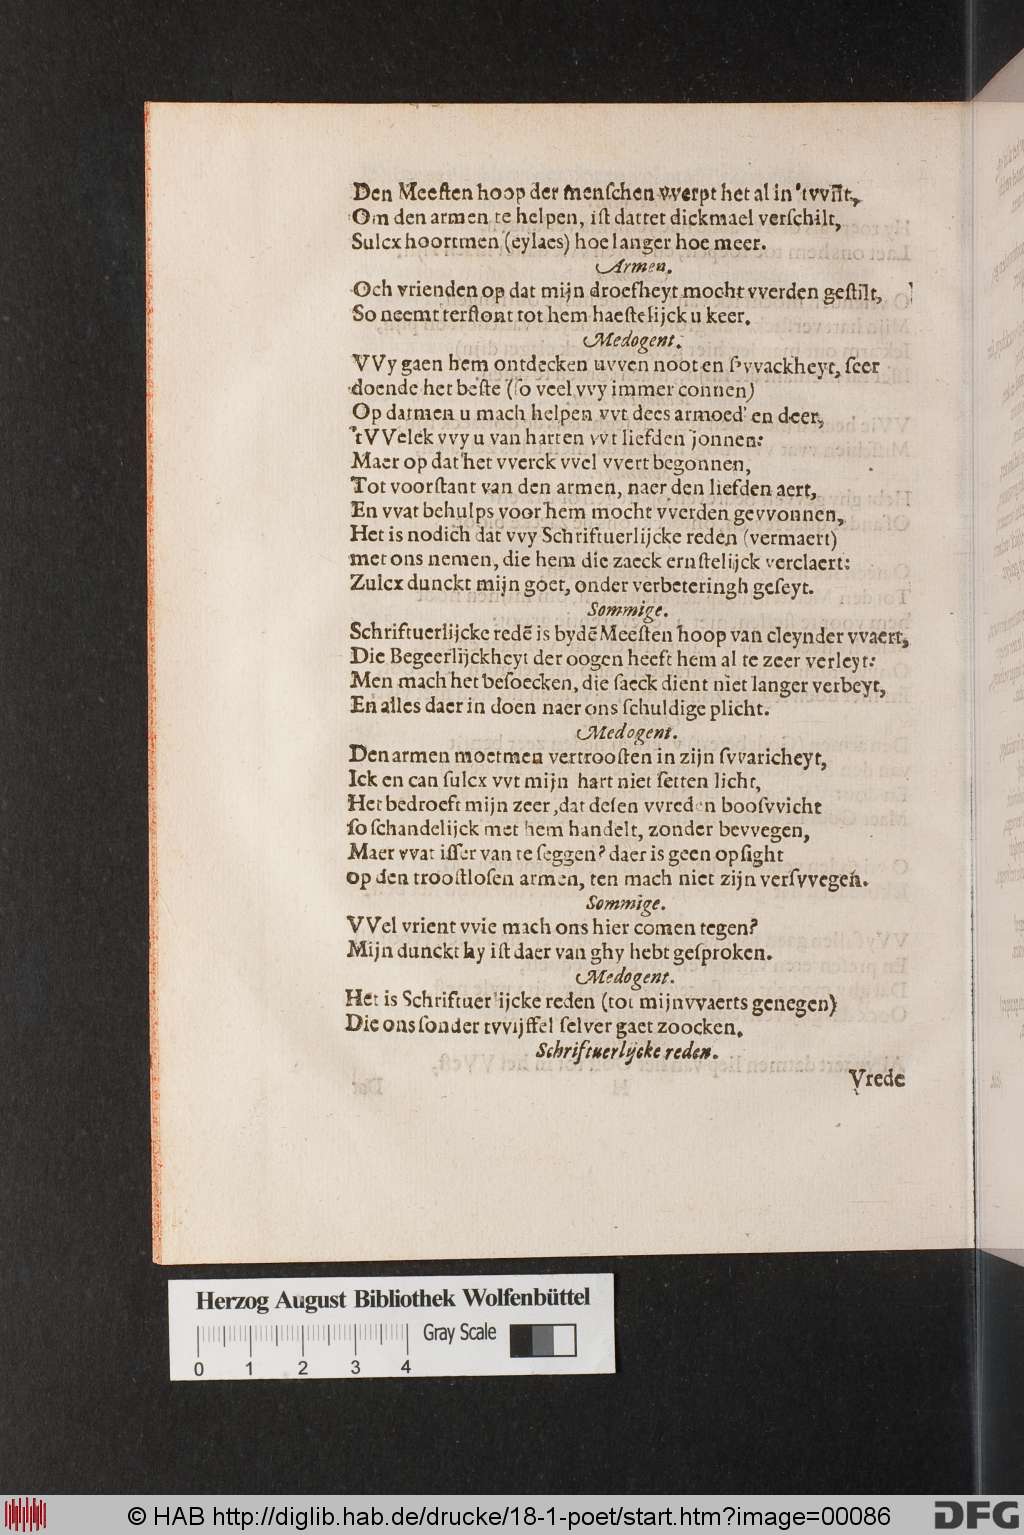 Den Meeſten hoop der menſchen vverpt het al in 'tvvilt,
Om den armen te helpen, iſt dattet dickmael verſchilt,
Sulcx hoortmen (eylaes) hoe langer hoe meer.
Armen.
Och vrienden op dat mijn droefheyt mocht vverden geſtilt,
So neemt terſtont tot hem haeſtelijck u keer.
Medogent.
VVy gaen hem ontdecken uvven noot en ſvvackheyt, ſeer
doende het beſte (ſo veel vvy immer connen)
Op darmen u mach helpen vvt dees armoed' en deer,
'tVVelck vvy u van harten vvt liefden jonnen:
Maer op dat het vverck vvel vvert begonnen,
Tot voorſtant van den armen, naer den liefden aert,
En vvat behulps voor hem mocht vverden gevvonnen,
Het is nodich dat vvy Schriftuerlijcke reden (vermaert)
met ons nemen, die hem die zaeck ernſtelijck verclaert:
Zulcx dunckt mijn goet, onder verbeteringh geſeyt.
Sommige.
Schriftuerlijcke redē is bydē Meeſten hoop van cleynder vvaert,
Die Begeerlijckheyt der oogen heeft hem al te zeer verleyt:
Men mach het beſoecken, die ſaeck dient niet langer verbeyt,
En alles daer in doen naer ons ſchuldige plicht.
Medogent.
Den armen moetmen vertrooſten in zijn ſvvaricheyt,
Ick en can ſulcx vvt mijn hart niet ſetten licht,
Het bedroeft mijn zeer, dat deſen vvreden booſvvicht
ſo ſchandelijck met hem handelt, zonder bevvegen,
Maer vvat iſſer van te ſeggen? daer is geen opſight
op den trooſtloſen armen, ten mach niet zijn verſvvegen.
Sommige.
VVel vrient vvie mach ons hier comen tegen?
Mijn dunckt hy iſt daer van ghy hebt geſproken.
Medogent.
Het is Schriftuerlijcke reden (tot mijnvvaerts genegen)
Die ons ſonder tvvijffel ſelver gaet zoocken.
Schriftuerlijcke reden.
Vrede
Herzog August Bibliothek Wolfenbüttel
Gray Scale
0 1 2 3 4
© HAB http://diglib.hab.de/drucke/18-1-poet/start.htm?image=00086
DFG